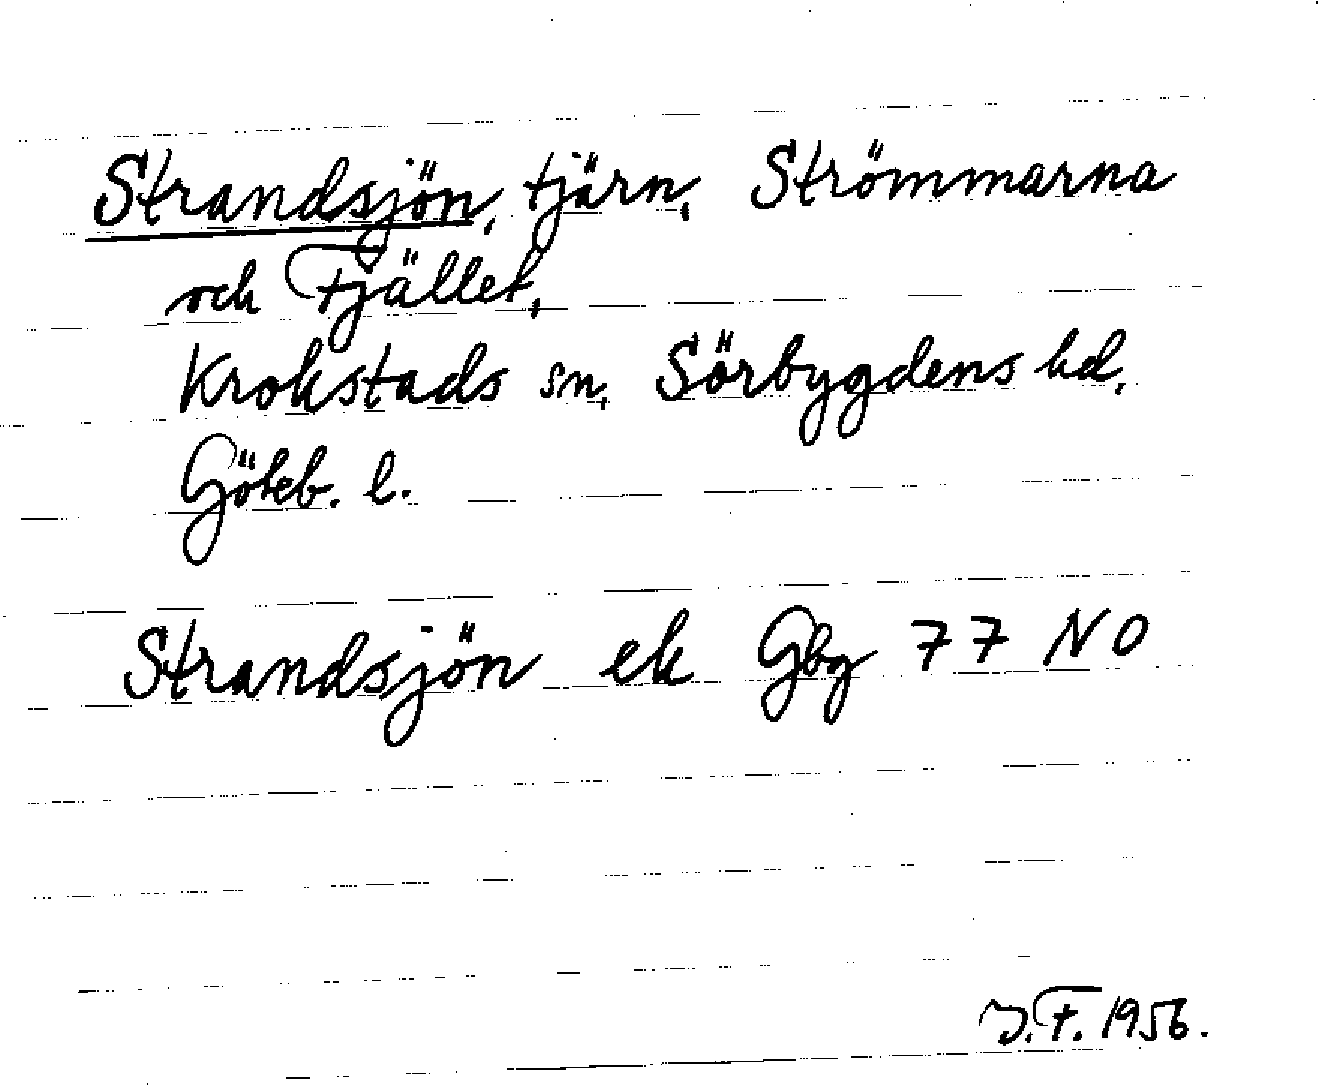 Strandsjön, tjärn, Strömmarna
och Fjället,
Krokstads sn, Sörbygdens hd,
Göteb. l.
Strandsjön ek Gbg 77 NO
J.F. 1956.